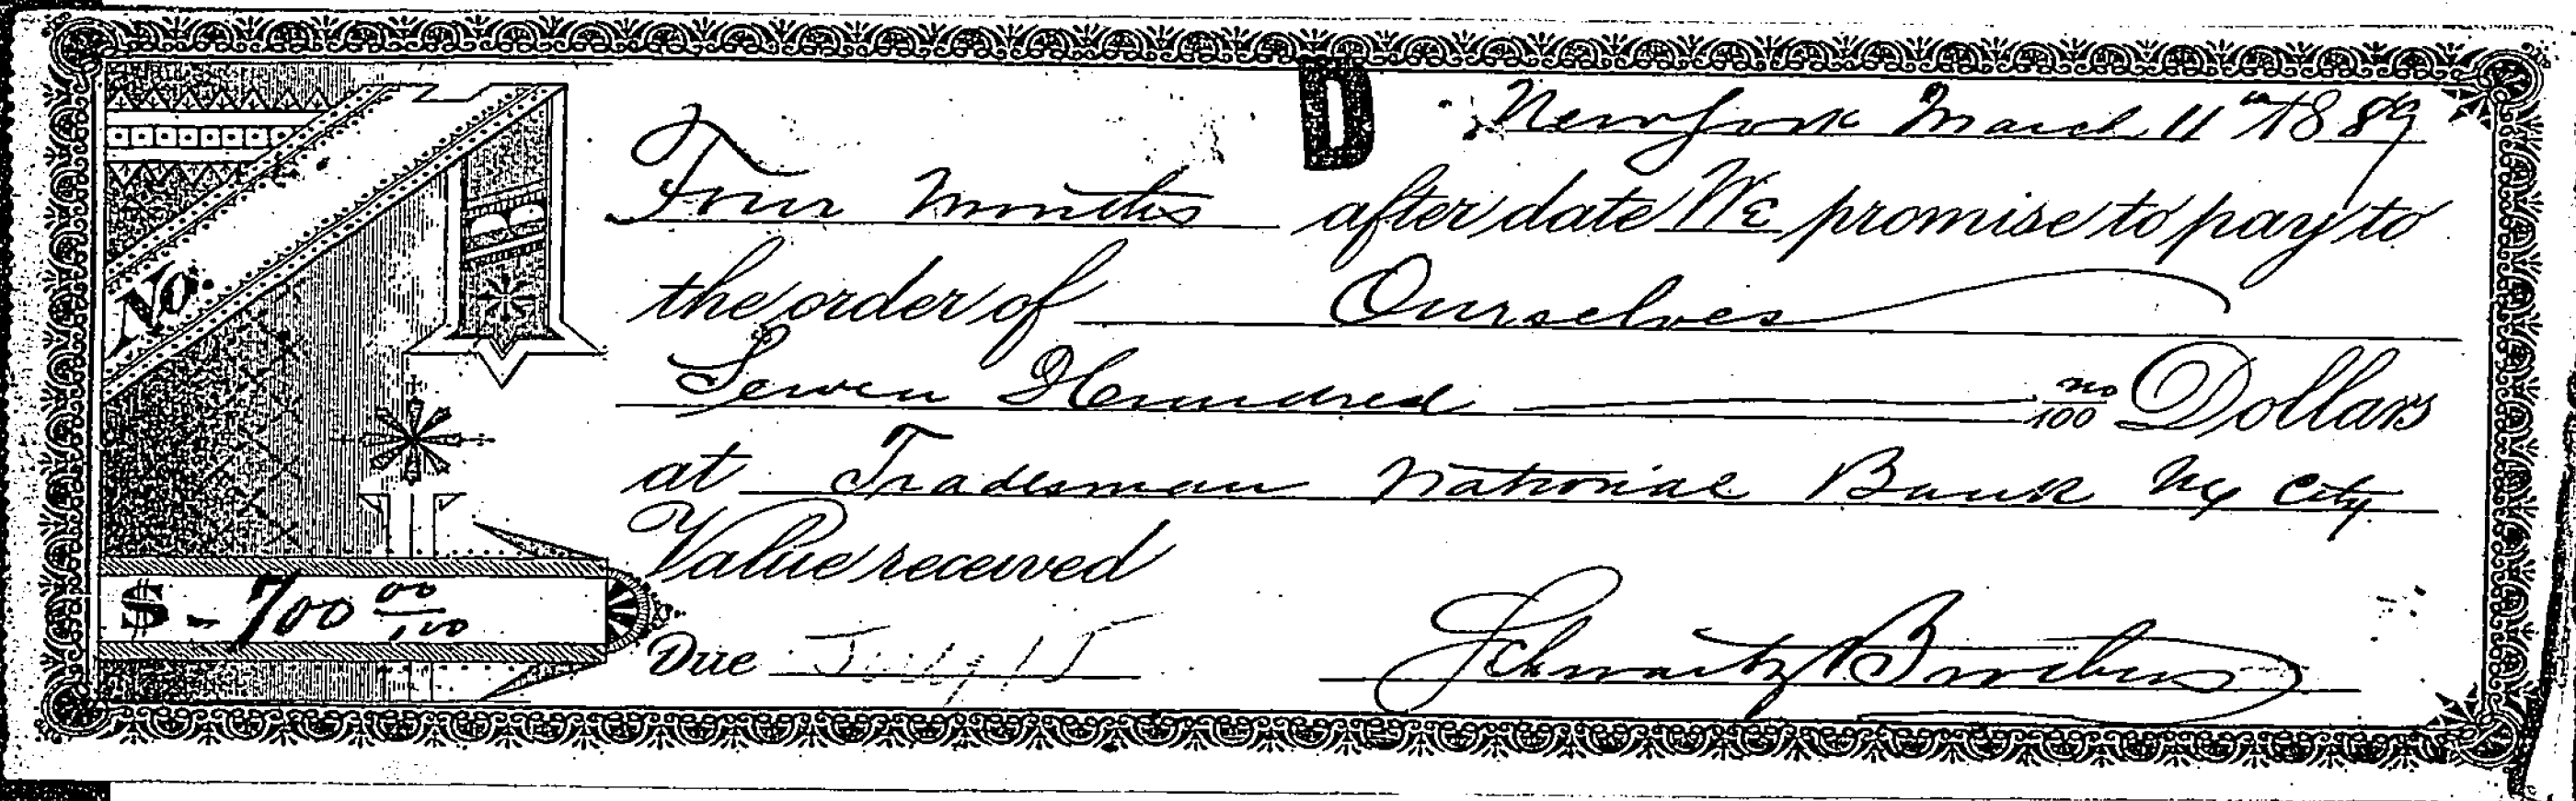 D
New York March 11th 1889
Four Months after date We promise to pay to
the order of Ourselves
Seven Hundred no/100 Dollars
at Tradesman National Bank NY City
Value received
No.
$ - 700 00/100
Due July 15
Schwartz Brothers